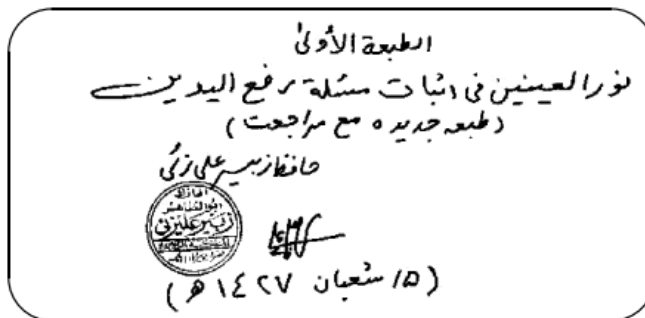 الطبعة الأولىٰ
نور العينين فی اثبات مسئلة رفع اليدين
(طبعہ جدیدہ مع مراجعت)
حافظ زبیر علی زئی
زبیر علیزئی
(۱۵ شعبان ۱٤۲۷ ھ)